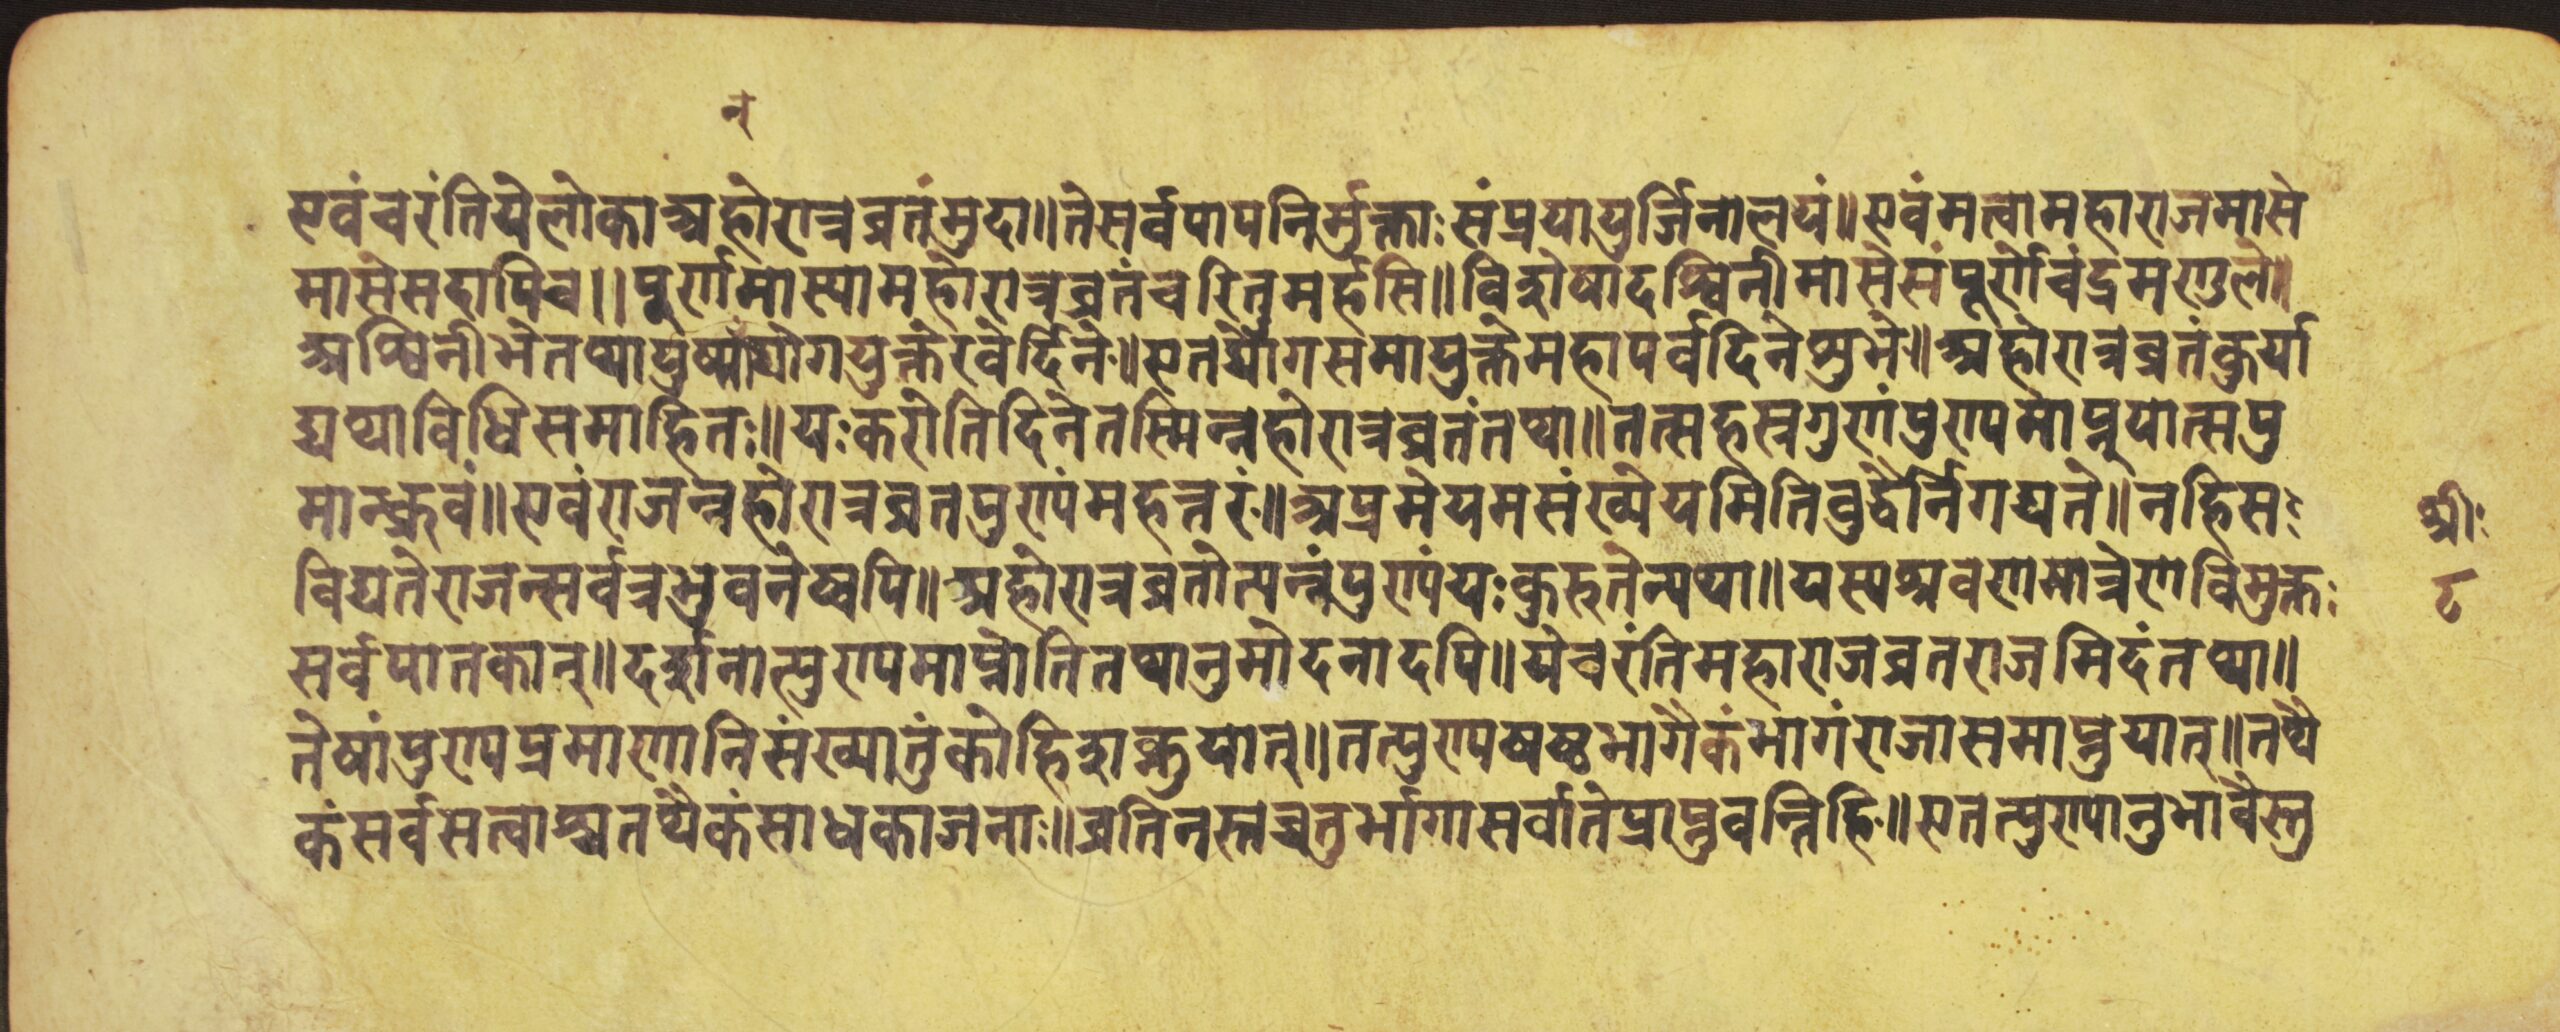 न्
एवं चरंति ये लोका अहोरात्रव्रतंमुदा॥ ते सर्वपापनिर्मुक्ताः संप्रयायुर्जिनालयं॥ एवं मत्वा महाराज मासे
मासे सदापि च॥ पुर्णमास्यामहोरात्रव्रतं चरितुमर्हसि॥ विशेषादश्विनीमासे संपूर्णे चंद्रमण्डले॥
अश्विनीभे तथा पुष्पयोगयुक्ते रवेर्दिने॥ एतद्योगसमायुक्ते महापर्वदिने शुभे॥ अहोरात्रव्रतं कुर्या
द्यथाविधिसमाहितः॥ यः करोति दिने तस्मिन्नहोरात्रव्रतं तथा॥ तत्सहस्रगुणं पुण्यमाप्नुयात्स पु
मान्ध्रुवं॥ एवं राजन्नहोरात्रव्रतपुण्यं महत्तरं॥ अप्रमेयमसंख्येयमिति बुद्धैर्निगद्यते॥ न हि सः
विद्यते राजन्सर्वत्रभुवनेष्वपि॥ अहोरात्रव्रतोत्पन्नं पुण्यं यः कुरुतेन्यथा॥ यस्य श्रवणमात्रेण विमुक्तः
सर्वपातकात्॥ दर्शनात्पुण्यमाप्नोति तथानुमोदनादपि॥ ये चरंति महाराज व्रतराजमिदं तथा॥
तेषां पुण्यप्रमाणानि संख्यातुं को हि शक्नुयात्॥ तत्पुण्यषष्ठभागैकं भागं राजा समाप्नुयात्॥ तथै
कं सर्वसत्वाश्च तथैकं साधका जनाः॥ व्रतिनस्तच्चतुर्भागा सर्वा ते प्राप्नुवन्ति हि॥ एतत्पुण्यानुभावैस्तु
श्रीः
८